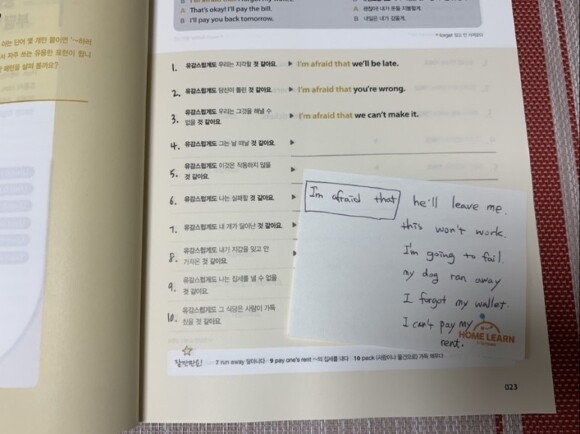 A That's okay! I'll pay the bill.
B I'll pay you back tomorrow.
괜찮아! 내가 돈을 지불할게.
내일은 내가 갚을게.
1. 유감스럽게도 우리는 지각할 것 같아요. ▶ I'm afraid that we'll be late.
2. 유감스럽게도 당신이 틀린 것 같아요. ▶ I'm afraid that you're wrong.
3. 유감스럽게도 우리는 그것을 해낼 수 없을 것 같아요. ▶ I'm afraid that we can't make it.
4. 유감스럽게도 그는 날 떠날 것 같아요. ▶
5. 유감스럽게도 이것은 작동하지 않을 것 같아요.
6. 유감스럽게도 나는 실패할 것 같아요. ▶
7. 유감스럽게도 내 개가 달아난 것 같아요. ▶
8. 유감스럽게도 내가 지갑을 잊고 안 가져온 것 같아요. ▶
9. 유감스럽게도 나는 집세를 낼 수 없을 것 같아요.
10. 유감스럽게도 그 식당은 사람이 가득 찼을 것 같아요.
I'm afraid that he'll leave me.
this won't work.
I'm going to fail.
my dog ran away
I forgot my wallet.
I can't pay my
rent.
HOME LEARN
7 run away 달아나다 9 pay one's rent ~의 집세를 내다 10 pack (사람이나 물건으로) 가득 채우다
023